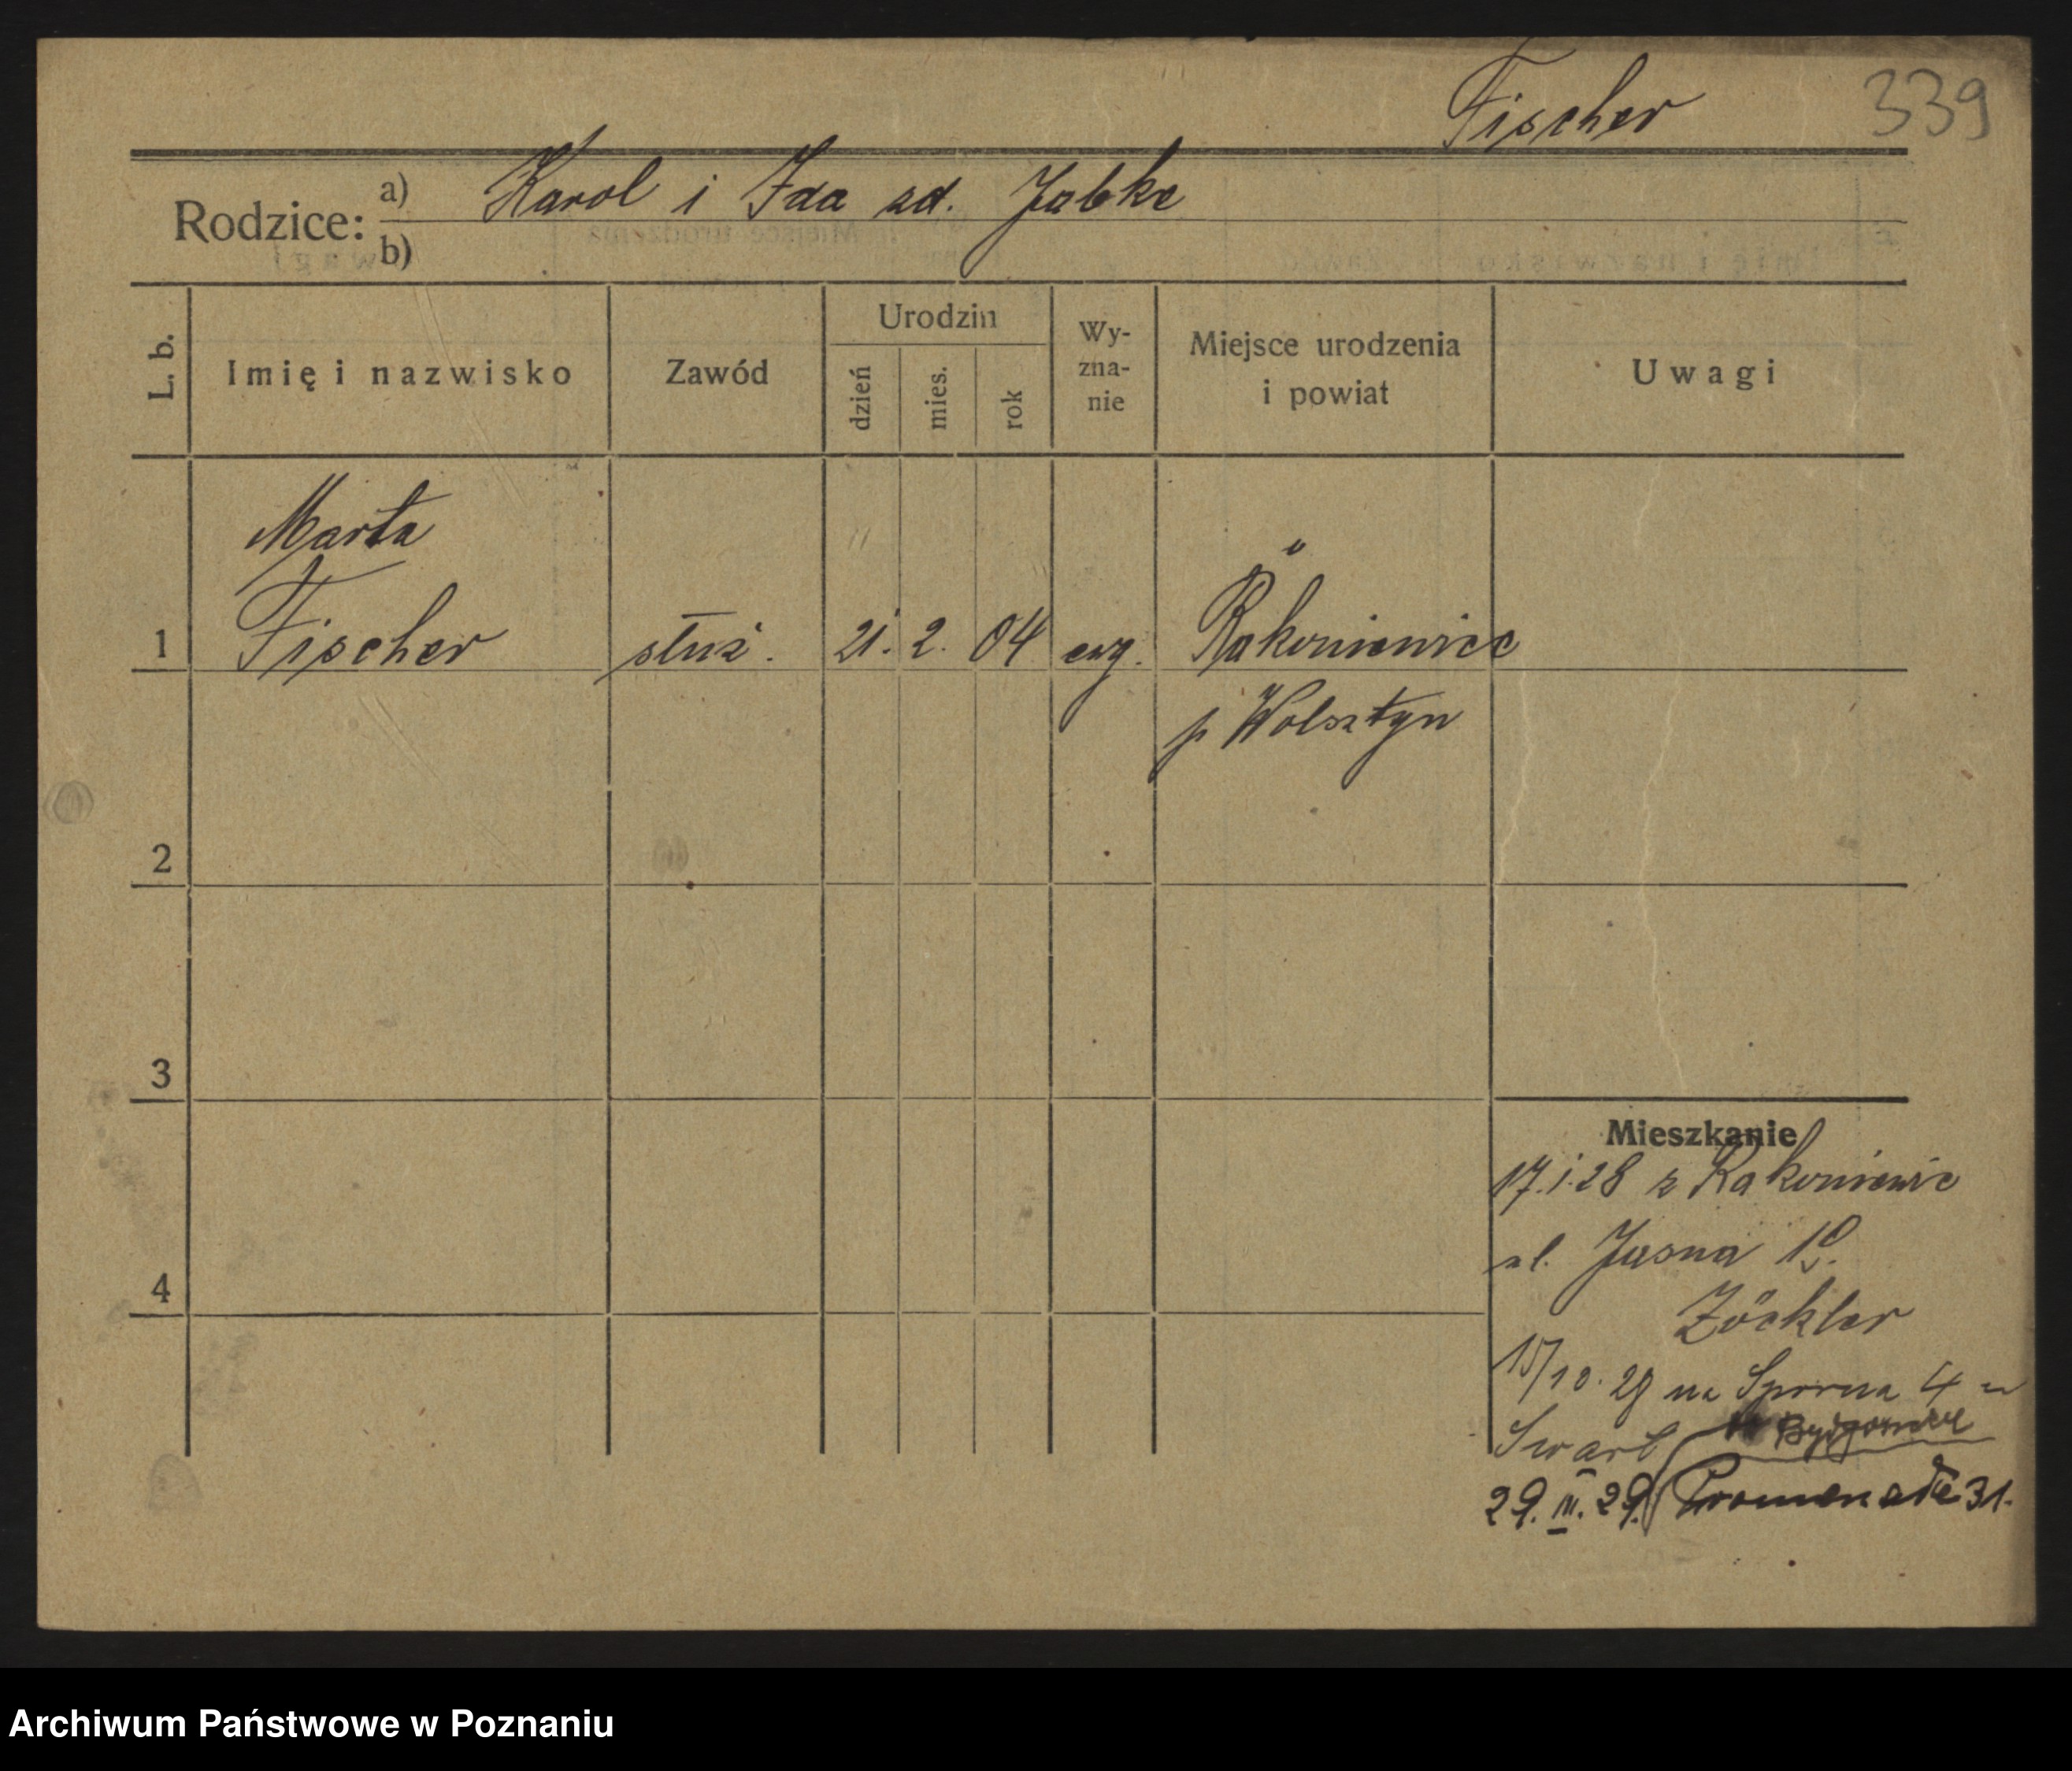 Fischer 339
Rodzice: a) Karol i Ida zd. Jabke
b)
L. b. Imię i nazwisko Zawód Urodzin dzień mies. rok Wy-zna-nie Miejsce urodzenia i powiat Uwagi
Marta
1 Fischer służ. 21. 2. 04 ewg. Rakoniewice
p Wolsztyn
2
3
Mieszkanie
17.1.28 z Rakoniewic
ul. Jasna 10.
4
Zöckler
15/10. 28 na Sporna 4
Swart Bydgoszcz
29. III. 29. Promenada 31.
Archiwum Państwowe w Poznaniu